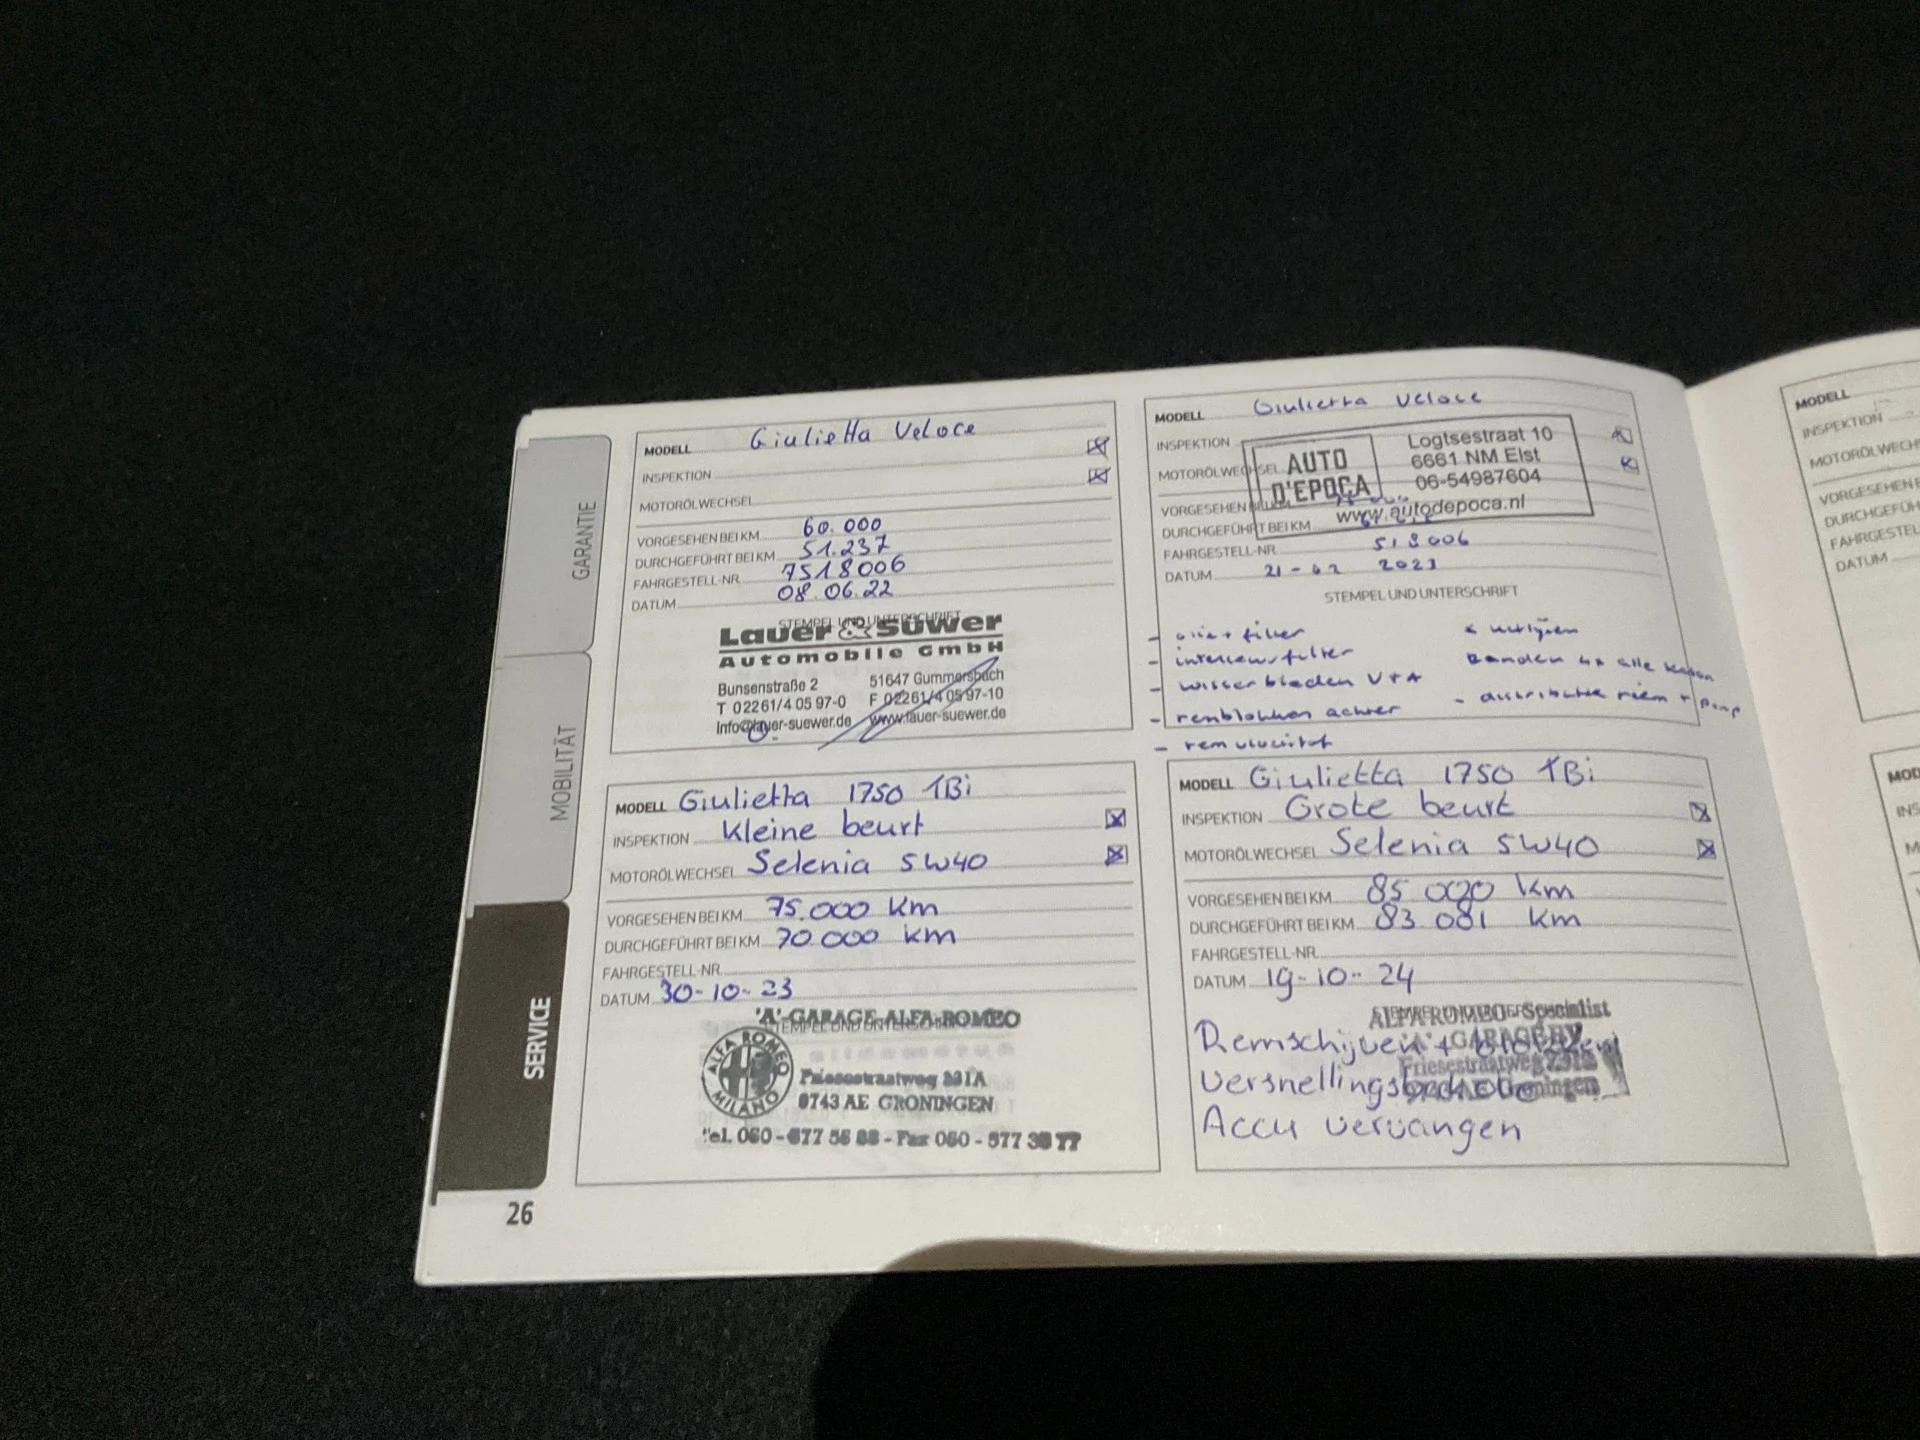 GARANTIE
MOBILITÄT
SERVICE
MODELL Giulietta Veloce
INSPEKTION
MOTORÖLWECHSEL
VORGESEHEN BEI KM 60.000
DURCHGEFÜHRT BEI KM 51.237
FAHRGESTELL-NR. 7518006
DATUM 08.06.22
STEMPEL UND UNTERSCHRIFT
Lauer & Süwer
Automobile GmbH
Bunsenstraße 2 51647 Gummersbach
T 02261/4 05 97-0 F 02261/4 05 97-10
Info@lauer-suewer.de www.lauer-suewer.de
MODELL Giulietta Veloce
INSPEKTION
MOTORÖLWECHSEL
AUTO D'EPOCA
Logtsestraat 10
6661 NM Elst
06-54987604
www.autodepoca.nl
VORGESEHEN BEI KM
DURCHGEFÜHRT BEI KM
FAHRGESTELL-NR. 518006
DATUM 21-02 2023
STEMPEL UND UNTERSCHRIFT
- olie + filter
- interieurfilter
- wisserbladen V+A
- remblokken achter
- remvloeistof
Banden 4x alle
- distributie riem + pomp
MODELL Giulietta 1750 TBi
INSPEKTION Kleine beurt
MOTORÖLWECHSEL Selenia 5W40
VORGESEHEN BEI KM 75.000 Km
DURCHGEFÜHRT BEI KM 70.000 km
FAHRGESTELL-NR.
DATUM 30-10-23
STEMPEL UND UNTERSCHRIFT
'A'-GARAGE ALFA-ROMEO
ALFA ROMEO MILANO
Friesestraatweg 231A
9743 AE GRONINGEN
MODELL Giulietta 1750 TBi
INSPEKTION Grote beurt
MOTORÖLWECHSEL Selenia 5W40
VORGESEHEN BEI KM 85.000 km
DURCHGEFÜHRT BEI KM 83.081 km
FAHRGESTELL-NR.
DATUM 19-10-24
ALFA ROMEO Specialist
'A' GARAGE BV
Friesestraatweg 231A
Groningen
Remschijven + blokken
Versnellingsbak olie
Accu vervangen
26
MODELL
INSPEKTION
MOTORÖLWECHS
VORGESEHEN
DURCHGEFÜH
FAHRGESTEL
DATUM
MOD
INS